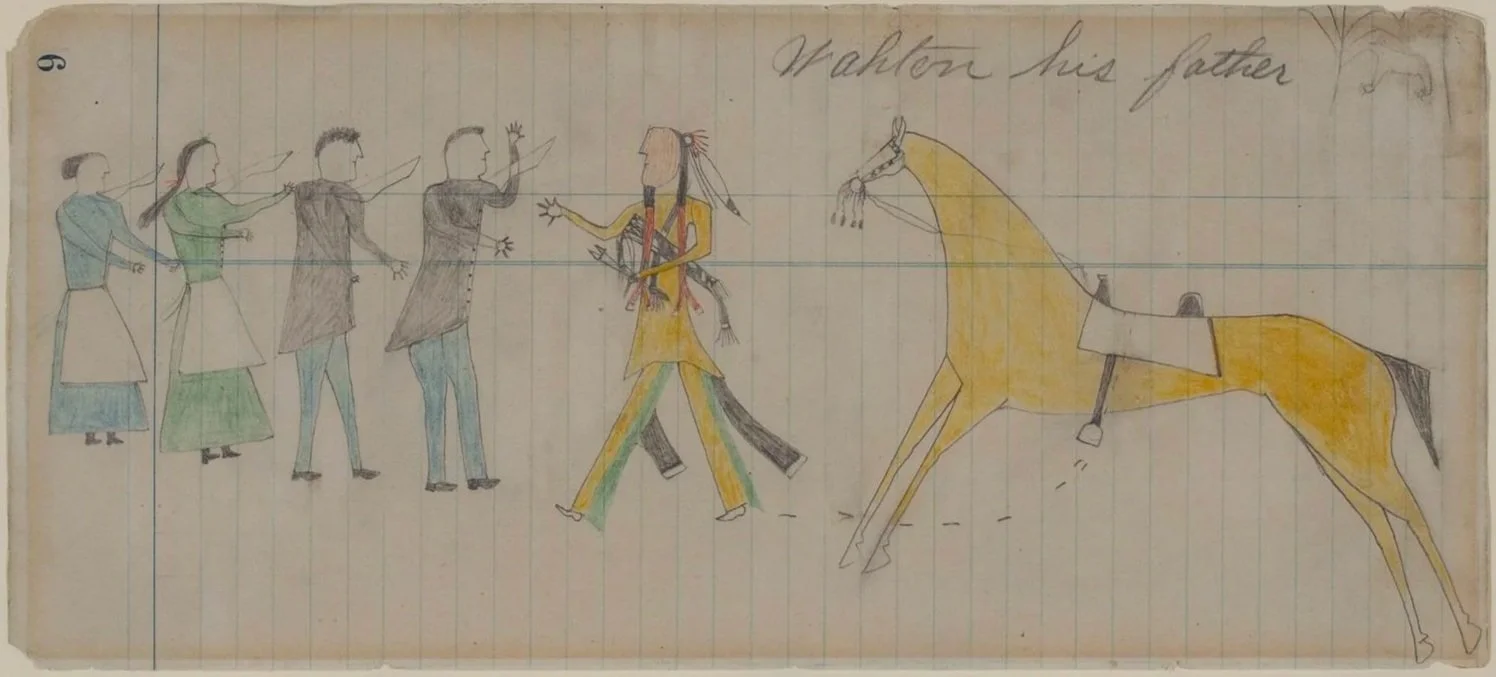 Wahton his father
9